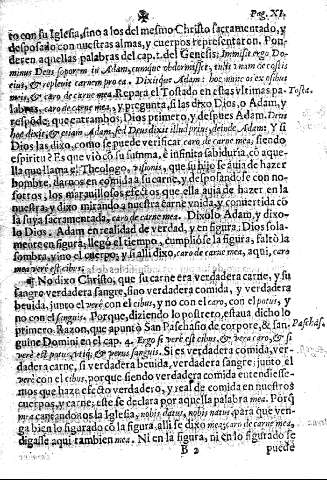 ✠ Pag. XI.
to con su Iglesia, sino a los del mesmo Christo sacramentado, y
desposado con nuestras almas, y cuerpos representaron. Pon-
deren aquellas palabras del cap. 2. del Genesis: Immisit ergo Do-
minus Deus soporem in Adam, cumque obdormisset, tulit unam de costis
eius, & replevit carnem pro ea. Dixitque Adam: hoc nunc os ex osibus
meis, & caro de carne mea. Repara el Tostado en estas ultimas pa-
Tosta.
labras, caro de carne mea, y pregunta, si las dixo Dios, o Adam, y
responde, que entrambos, Dios primero, y despues Adam. Deus
hoc dixit, & etiam Adam, sed Deus dixit illud prius, deinde Adam: Y si
Dios las dixo, como se puede verificar caro de carne mea, siendo
espiritu? Es que viò cõ su summa, è infinita sabiduria, cõ aque-
lla que llama el Theologo, que su hijo se auia de hazer
hombre, darnos en comida a su carne, y desposandose con no-
sotros, los marauillosos efectos que ella auia de hazer en la
nuestra, y dixo mirando a nuestra carne vnida, y conuertida cõ
la suya sacramentada, caro de carne mea. Dixolo Adam, y dixo-
lo Dios. Adam en realidad de verdad, y en figura: Dios sola-
mente en figura, llegò el tiempo, cumpliose la figura, faltò la
sombra, vino el cuerpo, y si alli dixo, caro de carne mea, aqui, caro
mea verè est cibus.
¶ No dixo Christo, que su carne era verdadera carne, y su
sangre verdadera sangre, sino verdadera comida, y verdadera
beuida, junto el verè con el cibus, y no con el caro, con el potus, y
no con el sanguis. Porque, diziendo lo postrero, estaua dicho lo
primero. Razon, que apuntò San Paschasio de corpore, & san-
Paschas.
guine Domini en el cap. 4. Ergo si verè est cibus, & vera caro, & si
verè est potus, utiq; & verus sanguis. Si es verdadera comida, ver-
dadera carne, si verdadera beuida, verdadera sangre: junto el
verè con el cibus, porque siendo verdadera comida entendiesse-
mos que haze efecto verdadero, y real de comida en nuestros
cuerpos, y carne: este se declara por aquella palabra mea. Porq̃
mea cantandonos la Iglesia, nobis datus, nobis natus, para que ven-
ga bien lo figurado cõ la figura, alli se dixo meas, caro de carne mea,
digasse aqui tambien mea. Ni en la figura, ni en lo figurado se
B 2 puede